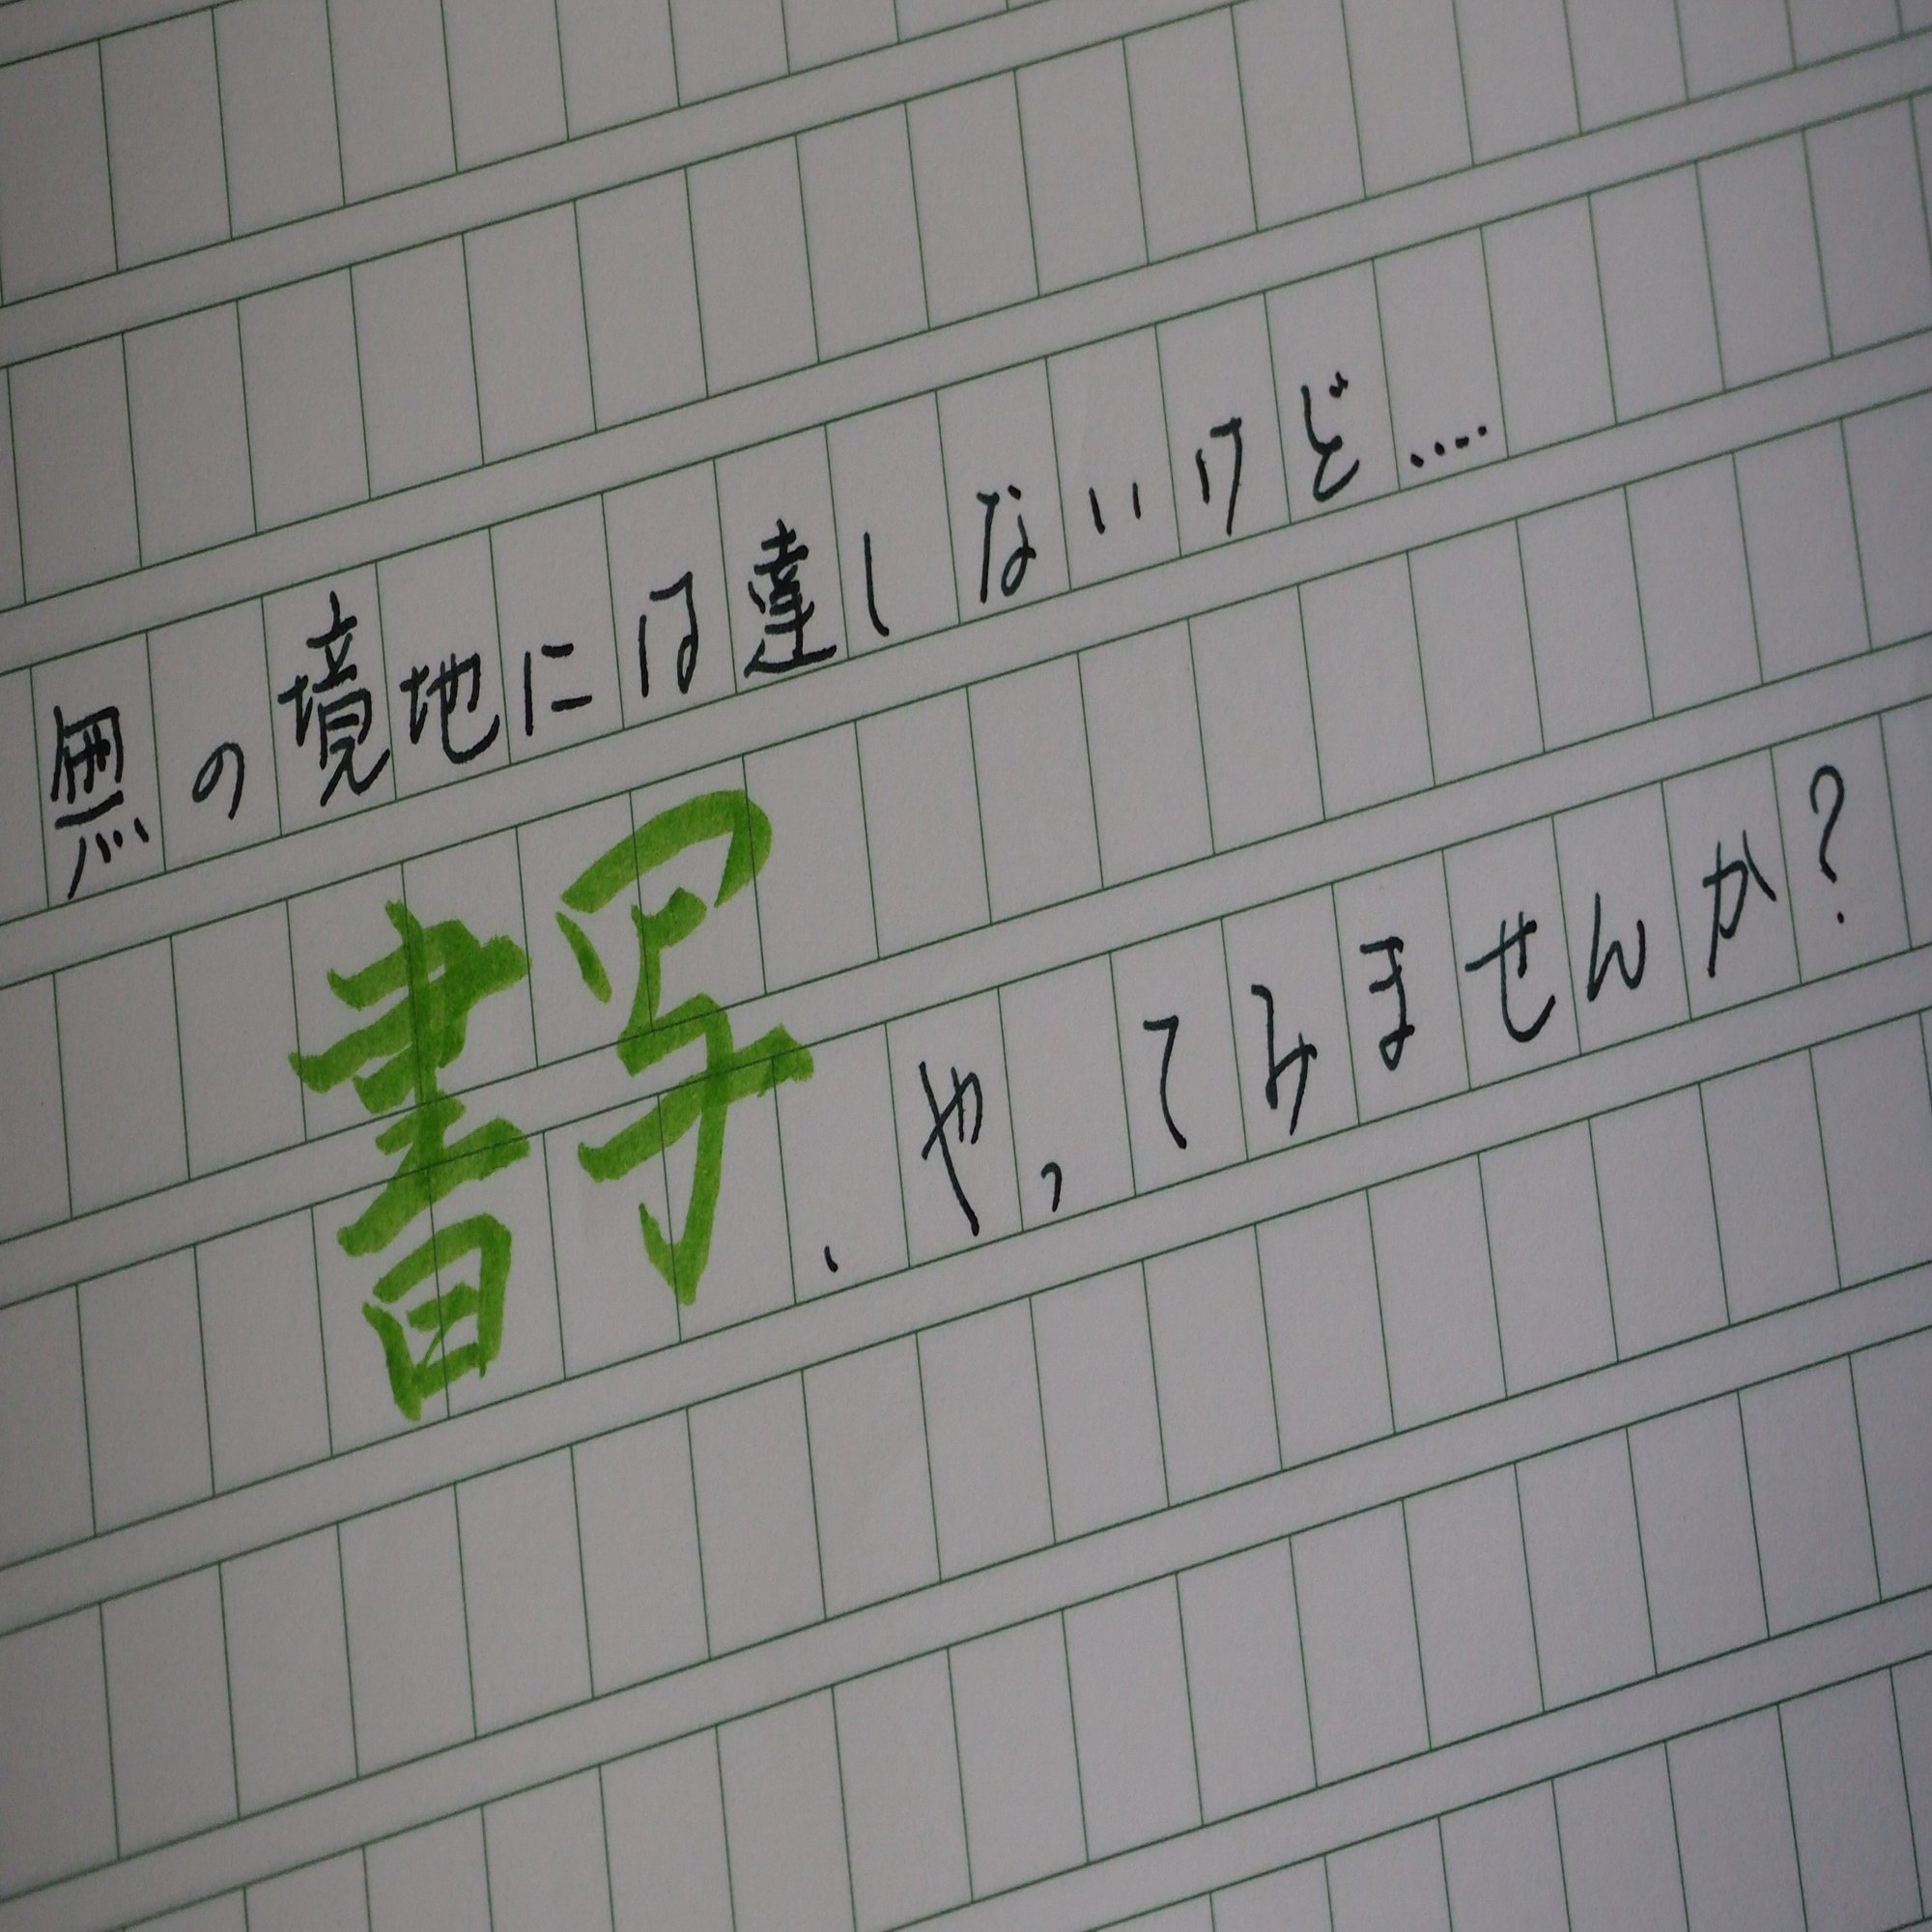 無の境地には達しないけど....
書写、やってみませんか?